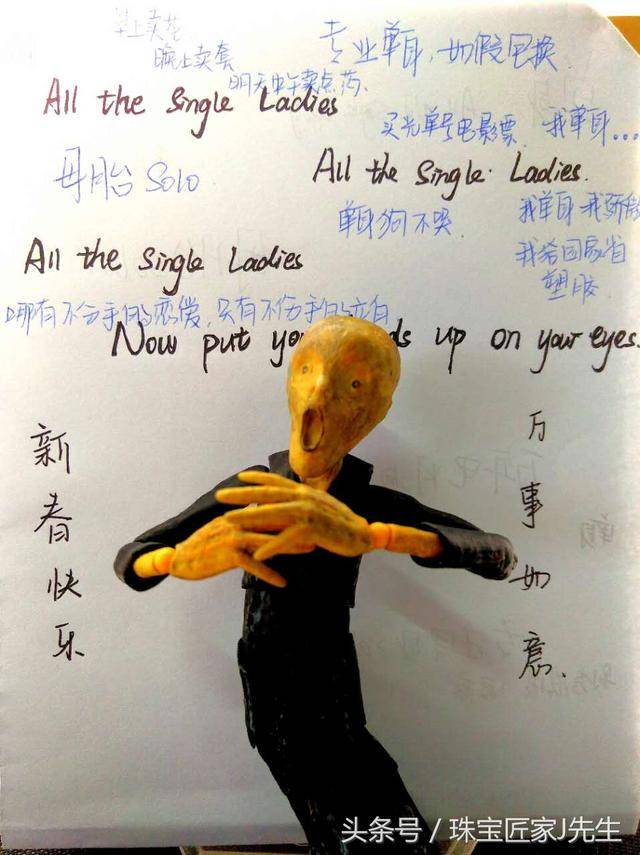 早上卖花
晚上卖套
明天中午卖点药.
专业单身,如假包换
All the Single Ladies
买光单号电影票.
我单身...
母胎 Solo
All the Single Ladies.
单身狗不哭
我单身 我骄傲
我给国家省
塑胶
All the Single Ladies
哪有不分手的恋爱,只有不分手的
Now put up on your eyes.
新春快乐
万事如意.
头条号/珠宝匠家J先生